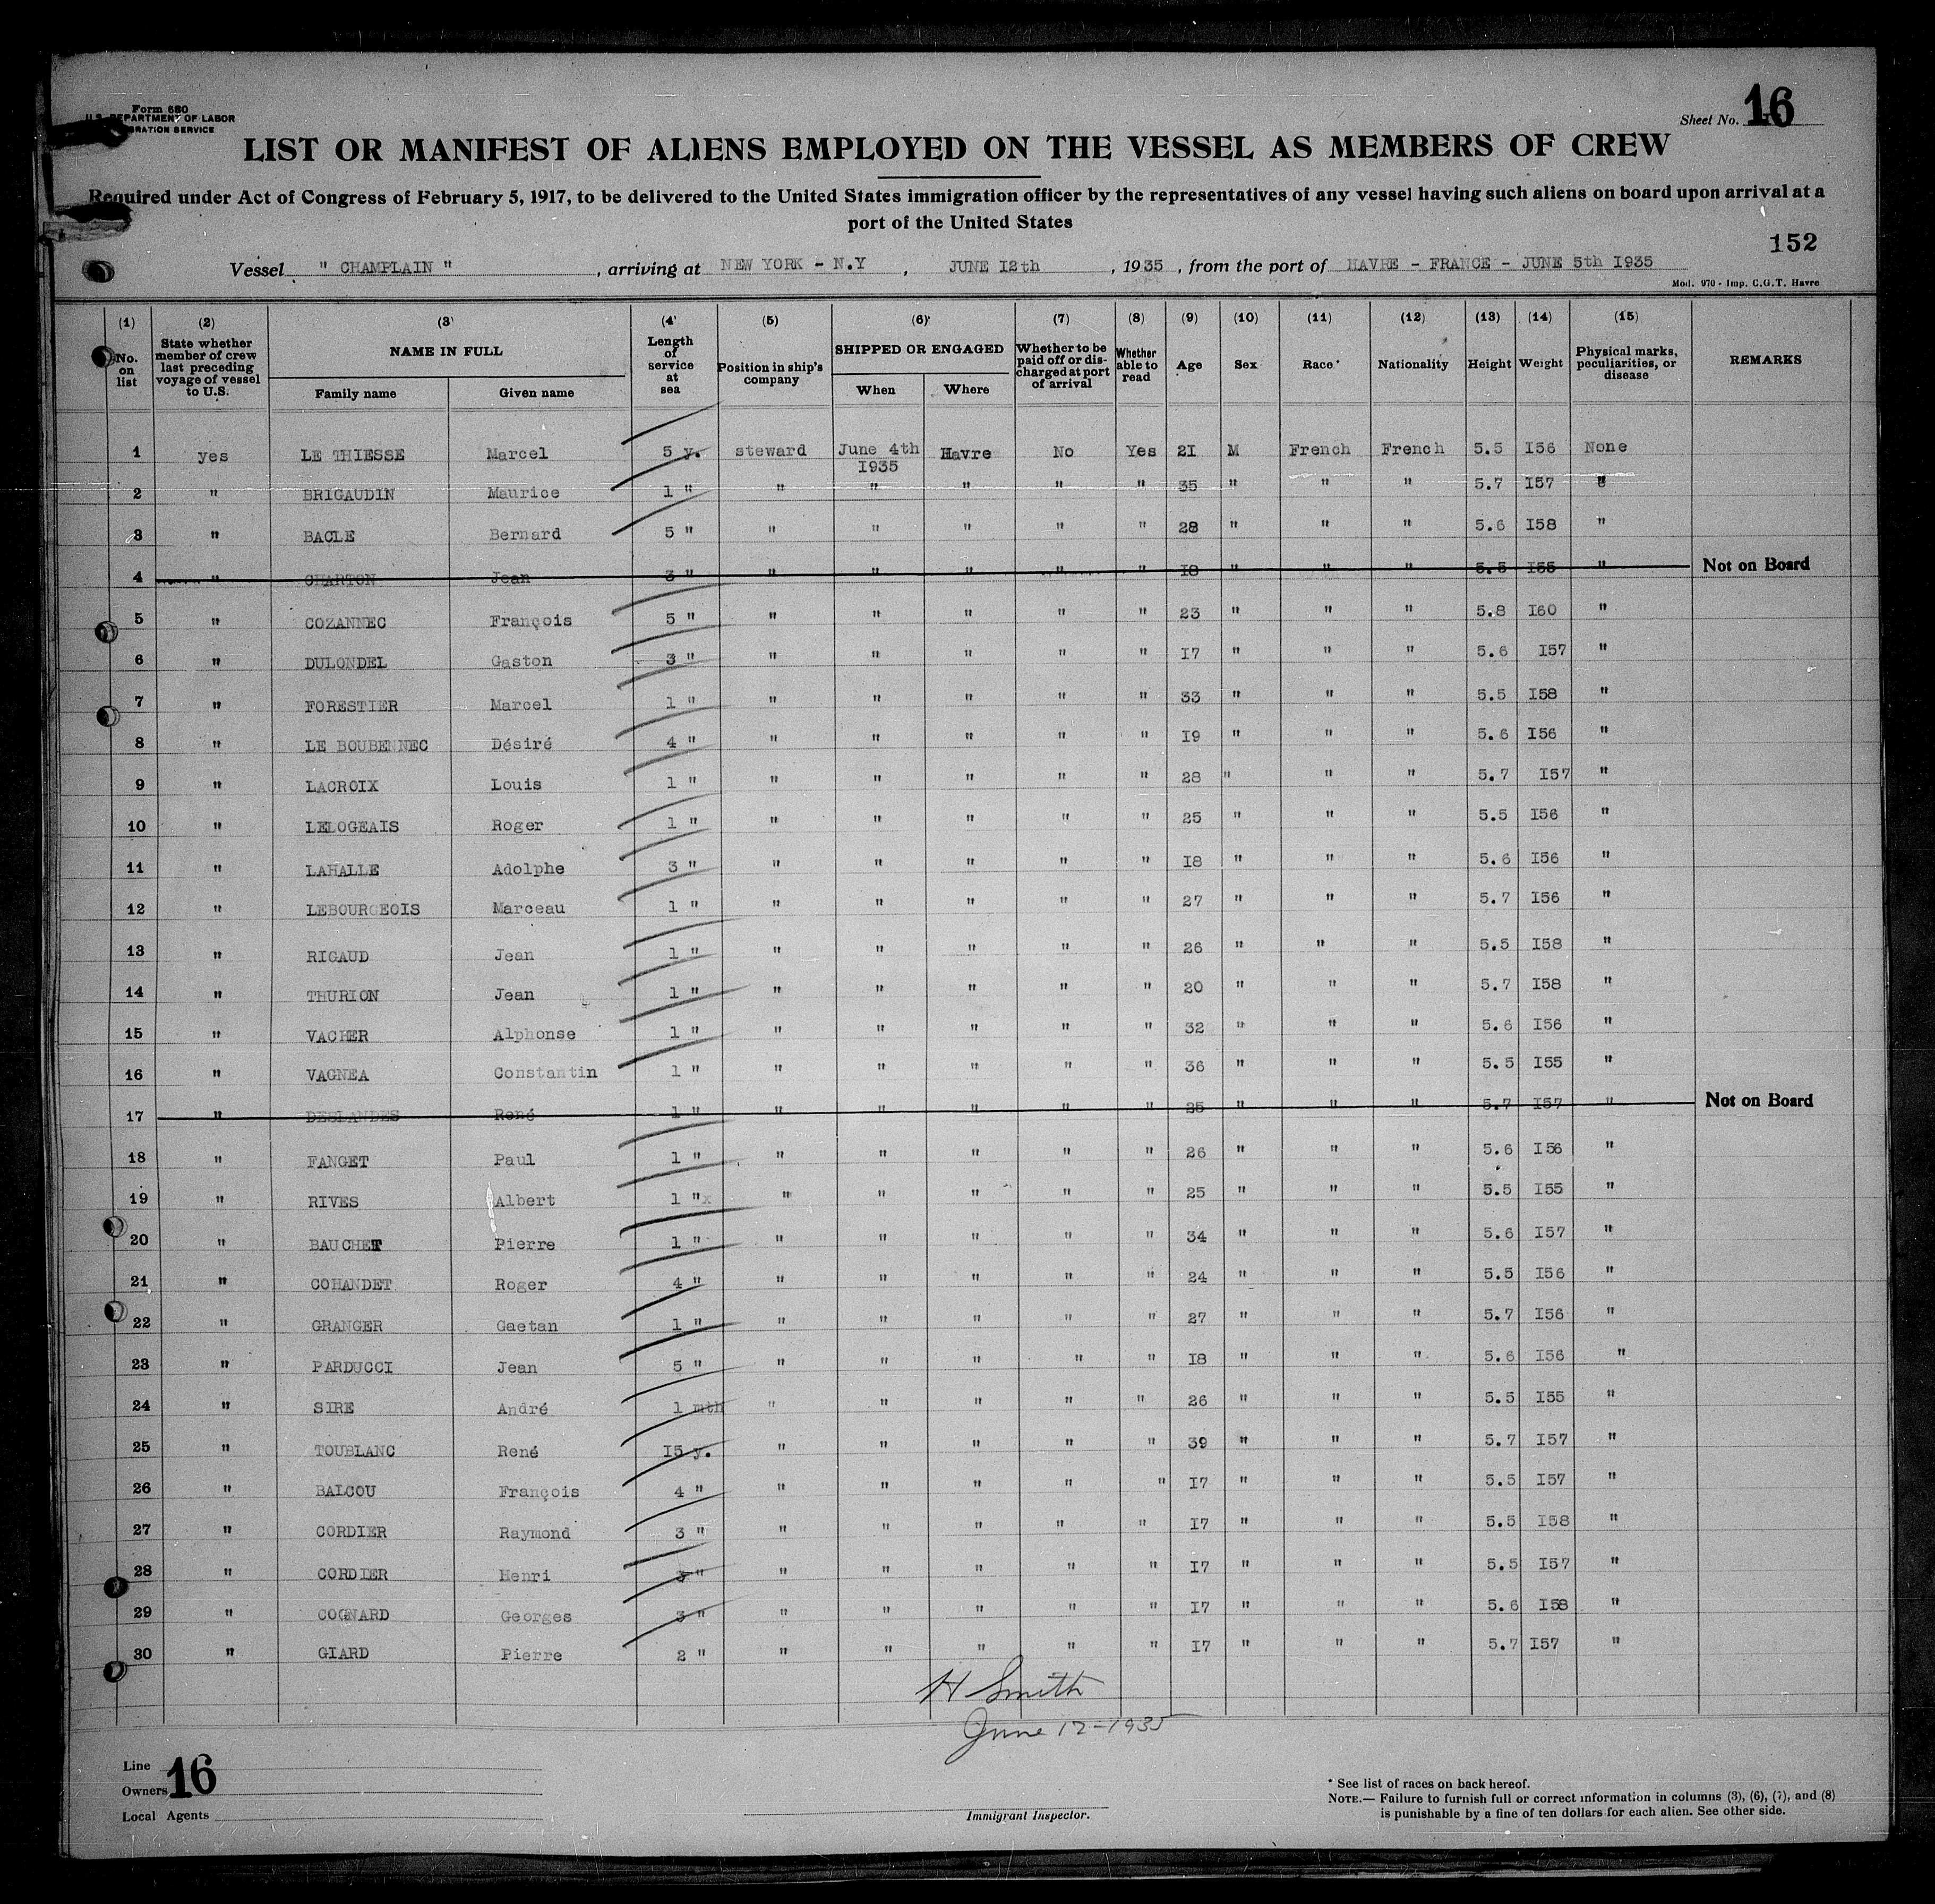 Form 680
U.S. DEPARTMENT OF LABOR
IMMIGRATION SERVICE
Sheet No. 16
LIST OR MANIFEST OF ALIENS EMPLOYED ON THE VESSEL AS MEMBERS OF CREW
Required under Act of Congress of February 5, 1917, to be delivered to the United States immigration officer by the representatives of any vessel having such aliens on board upon arrival at a
port of the United States
152
Vessel " CHAMPLAIN " , arriving at NEW YORK - N.Y , JUNE I2th , 1935 , from the port of HAVRE - FRANCE - JUNE 5th I935
Mod. 970 - Imp. C.G.T. Havre
(1) (2) (3) (4) (5) (6) (7) (8) (9) (10) (11) (12) (13) (14) (15)
No. on list State whether member of crew last preceding voyage of vessel to U.S. NAME IN FULL Family name Given name Length of service at sea Position in ship's company SHIPPED OR ENGAGED When Where Whether to be paid off or discharged at port of arrival Whether able to read Age Sex Race* Nationality Height Weight Physical marks, peculiarities, or disease REMARKS
1 yes LE THIESSE Marcel 5 y. steward June 4th I935 Havre No Yes 2I M French French 5.5 I56 None
2 " BRIGAUDIN Maurice 1 " " " " " " 35 " " " 5.7 I57 "
3 " BACLE Bernard 5 " " " " " " 28 " " " 5.6 I58 "
4 " CHARTON Jean 3 " " " " " " I8 " " " 5.5 I55 " Not on Board
5 " COZANNEC François 5 " " " " " " 23 " " " 5.8 I60 "
6 " DULONDEL Gaston 3 " " " " " " I7 " " " 5.6 I57 "
7 " FORESTIER Marcel 1 " " " " " " 33 " " " 5.5 I58 "
8 " LE BOUBENNEC Désiré 4 " " " " " " I9 " " " 5.6 I56 "
9 " LACROIX Louis 1 " " " " " " 28 " " " 5.7 I57 "
10 " LELOGEAIS Roger 1 " " " " " " 25 " " " 5.5 I56 "
11 " LAHALLE Adolphe 3 " " " " " " I8 " " " 5.6 I56 "
12 " LEBOURGEOIS Marceau 1 " " " " " " 27 " " " 5.7 I56 "
13 " RIGAUD Jean 1 " " " " " " 26 " " " 5.5 I58 "
14 " THURION Jean 1 " " " " " " 20 " " " 5.7 I58 "
15 " VACHER Alphonse 1 " " " " " " 32 " " " 5.6 I56 "
16 " VAGNEA Constantin 1 " " " " " " 36 " " " 5.5 I55 "
17 " DESLANDES René 1 " " " " " " 25 " " " 5.7 I57 " Not on Board
18 " FANGET Paul 1 " " " " " " 26 " " " 5.6 I56 "
19 " RIVES Albert 1 " " " " " " 25 " " " 5.5 I55 "
20 " BAUCHET Pierre 1 " " " " " " 34 " " " 5.6 I57 "
21 " COHANDET Roger 4 " " " " " " 24 " " " 5.5 I56 "
22 " GRANGER Gaetan 1 " " " " " " 27 " " " 5.7 I56 "
23 " PARDUCCI Jean 5 " " " " " " I8 " " " 5.6 I56 "
24 " SIRE André 1 mth " " " " " 26 " " " 5.5 I55 "
25 " TOUBLANC René I5 y. " " " " " 39 " " " 5.7 I57 "
26 " BALCOU François 4 " " " " " " I7 " " " 5.5 I57 "
27 " CORDIER Raymond 3 " " " " " " I7 " " " 5.5 I58 "
28 " CORDIER Henri 3 " " " " " " I7 " " " 5.5 I57 "
29 " COGNARD Georges 3 " " " " " " I7 " " " 5.6 I58 "
30 " GIARD Pierre 2 " " " " " " I7 " " " 5.7 I57 "
H Smith
June 12-1935
Line
Owners 16
Local Agents
Immigrant Inspector.
* See list of races on back hereof.
NOTE.— Failure to furnish full or correct information in columns (3), (6), (7), and (8)
is punishable by a fine of ten dollars for each alien. See other side.